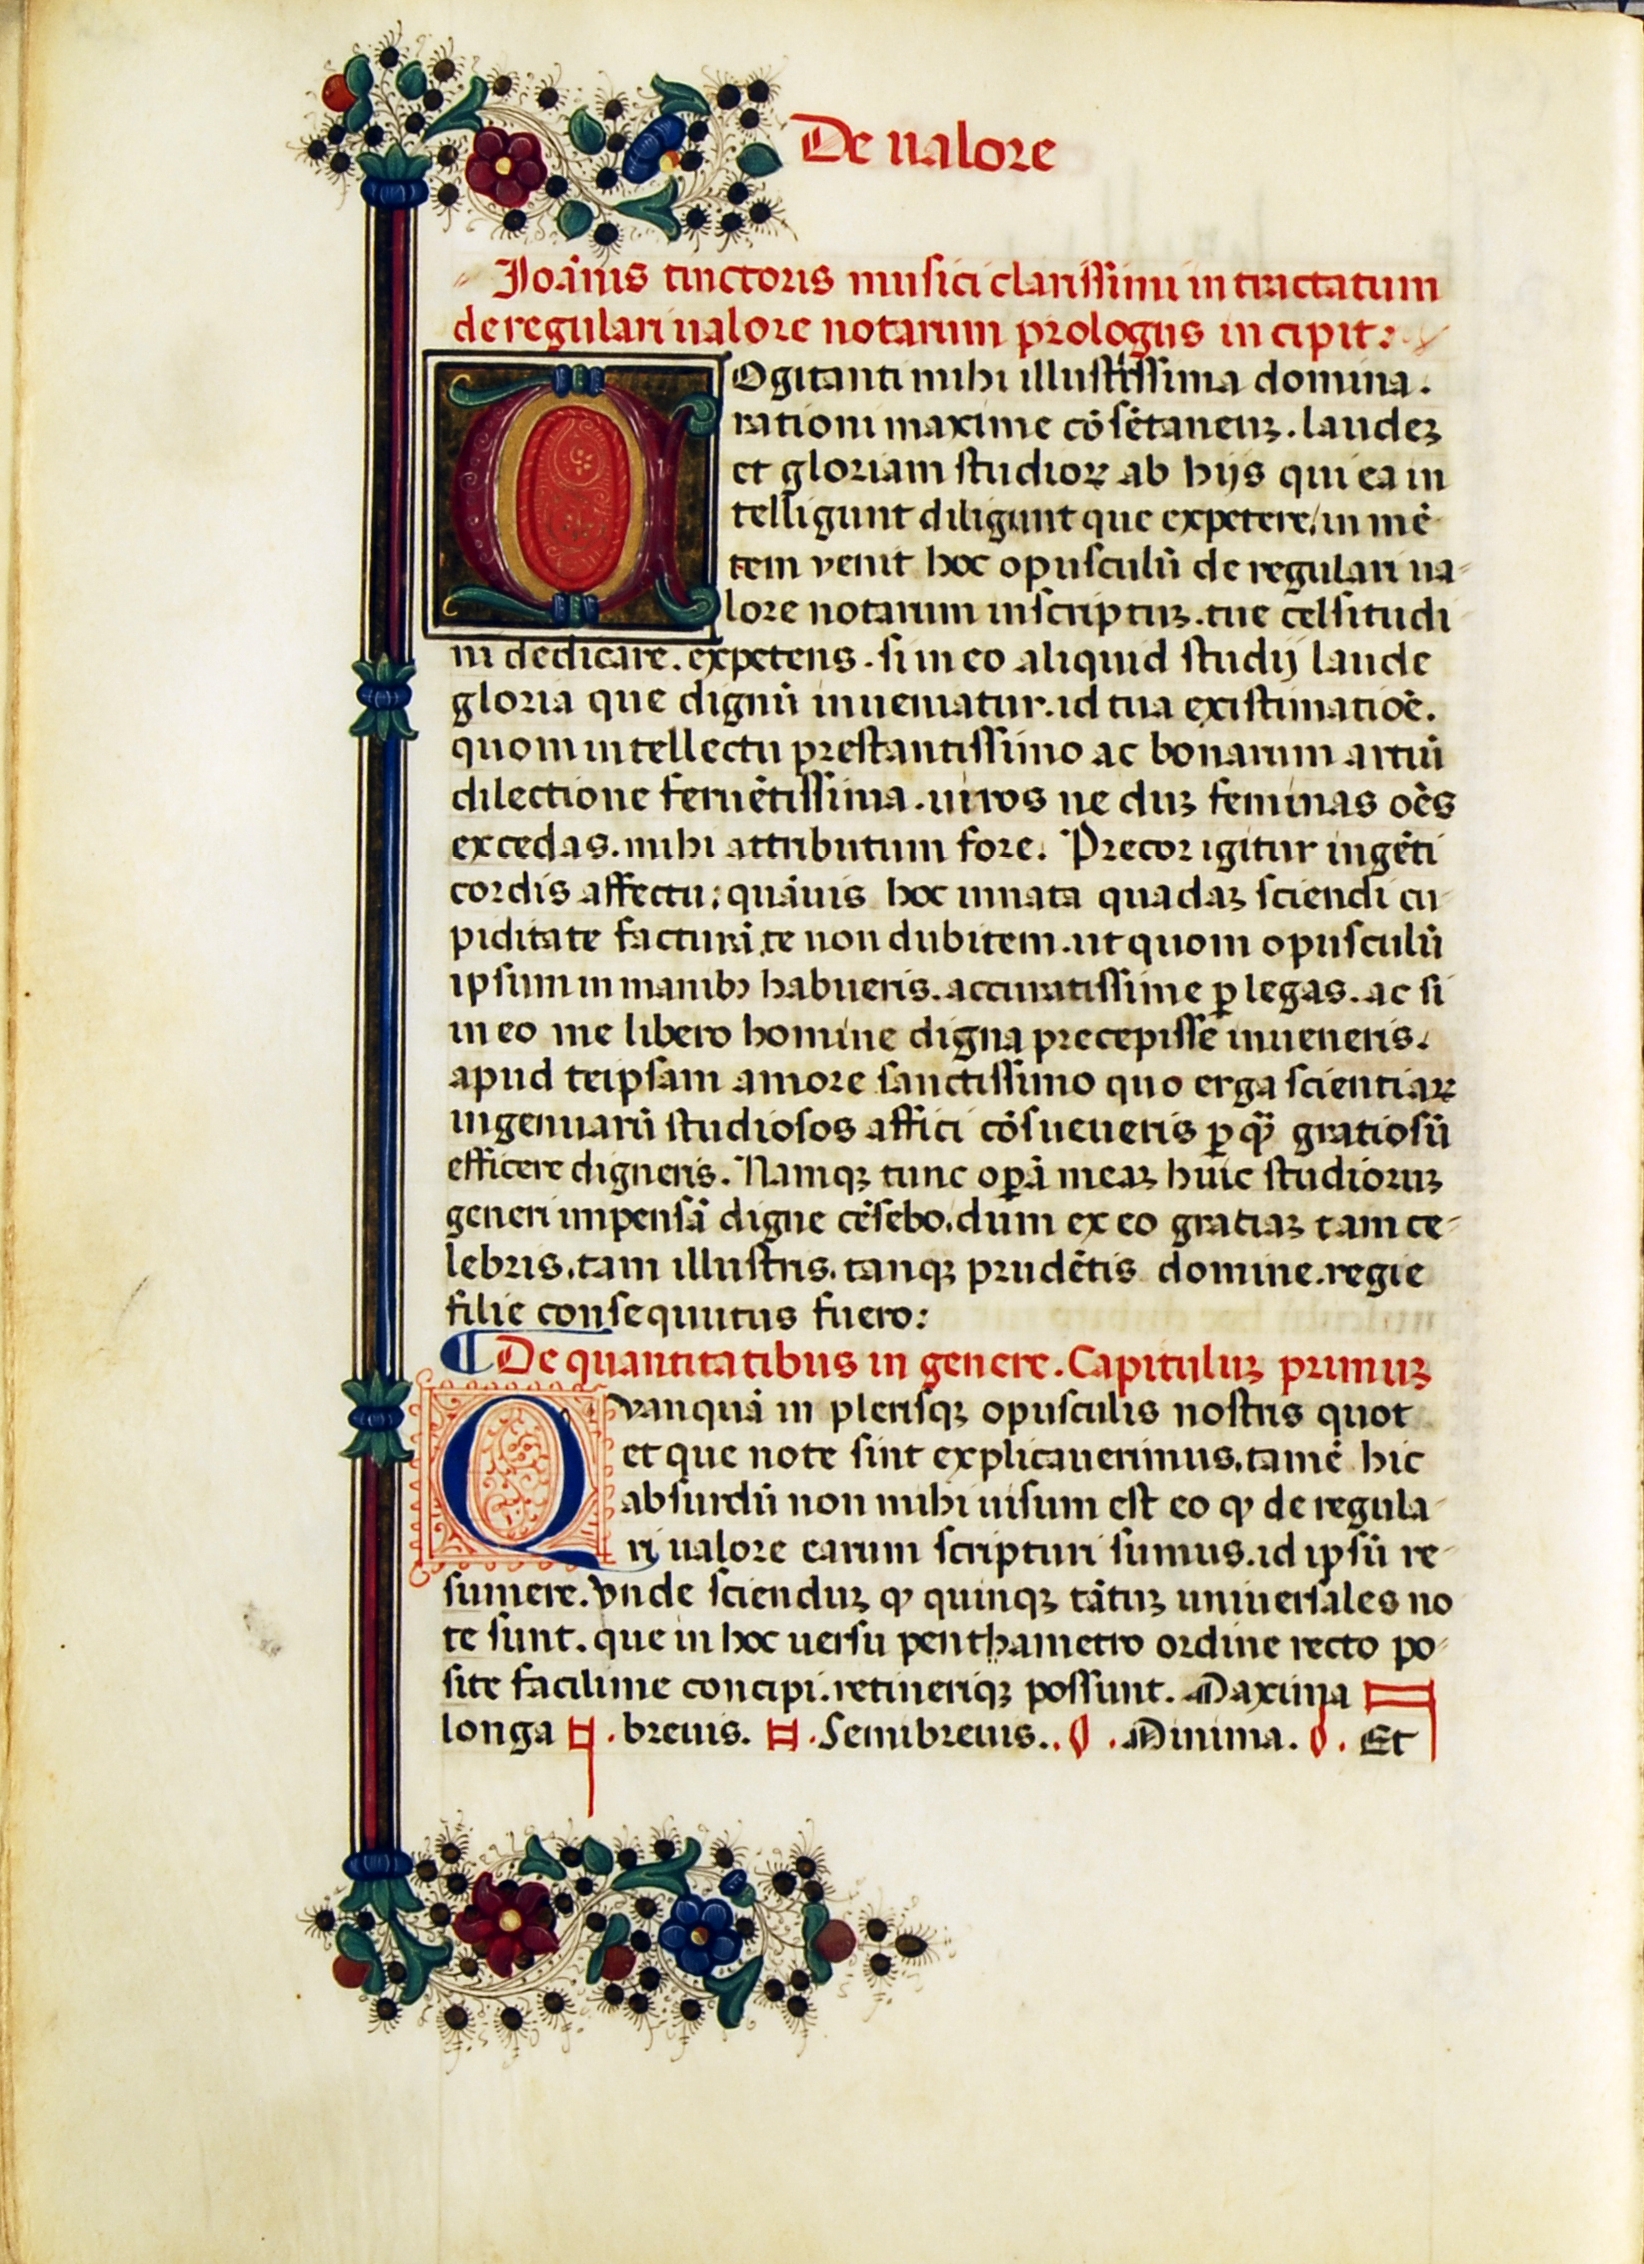 De ualore
Joãnis tinctoris musici clarissimi in tractatum
de regulari ualore notarum prologus incipit:
COgitanti mihi illustrissima domina.
rationi maxime cõsẽtaneuꝫ. laudeꝫ
et gloriam studioꝝ ab hijs qui ea in
telligunt diligunt que expetere, in mẽ
tem venit hoc opusculũ de regulari ua-
lore notarum inscriptuꝫ. tue celsitudi
ni dedicare. expetens. si in eo aliquid studij laude
gloria que dignũ inueniatur. id tua existimatiõe.
quom intellectu prestantissimo ac bonarum artiũ
dilectione feruẽtissima. uiros ne duꝫ feminas oẽs
excedas. mihi attributum fore. Precor igitur ingẽti
cordis affectu: quãuis hoc innata quadaꝫ sciendi cu
piditate facturã te non dubitem. ut quom opusculũ
ipsum in manibꝫ habueris. accuratissime ꝑ legas. ac si
in eo me libero homine digna precepisse inueneris.
apud teipsam amore sanctissimo quo erga scientiaꝝ
ingenuarũ studiosos affici cõsueueris ꝑ qᷓ gratiosũ
efficere digneris. Namqꝫ tunc oꝑã meaꝫ huic studioruꝫ
generi impensã digne cẽsebo. dum ex eo gratiaꝫ tam ce-
lebris. tam illustris. tanqꝫ prudẽtis domine. regie
filie consequutus fuero:
¶ De quantitatibus in genere. Capituluꝫ primuꝫ
Quanquã in plerisqꝫ opusculis nostris quot
et que note sint explicauerimus. tamẽ hic
absurdũ non mihi uisum est eo ꝙ de regula-
ri ualore earum scripturi sumus. id ipsũ re-
sumere. Vnde scienduꝫ ꝙ quinqꝫ tãtuꝫ uniuersales no
te sunt. que in hoc uersu penthametro ordine recto po-
site facilime concipi. retineriqꝫ possunt. Maxima
longa . breuis. . Semibreuis. . Minima. . Et